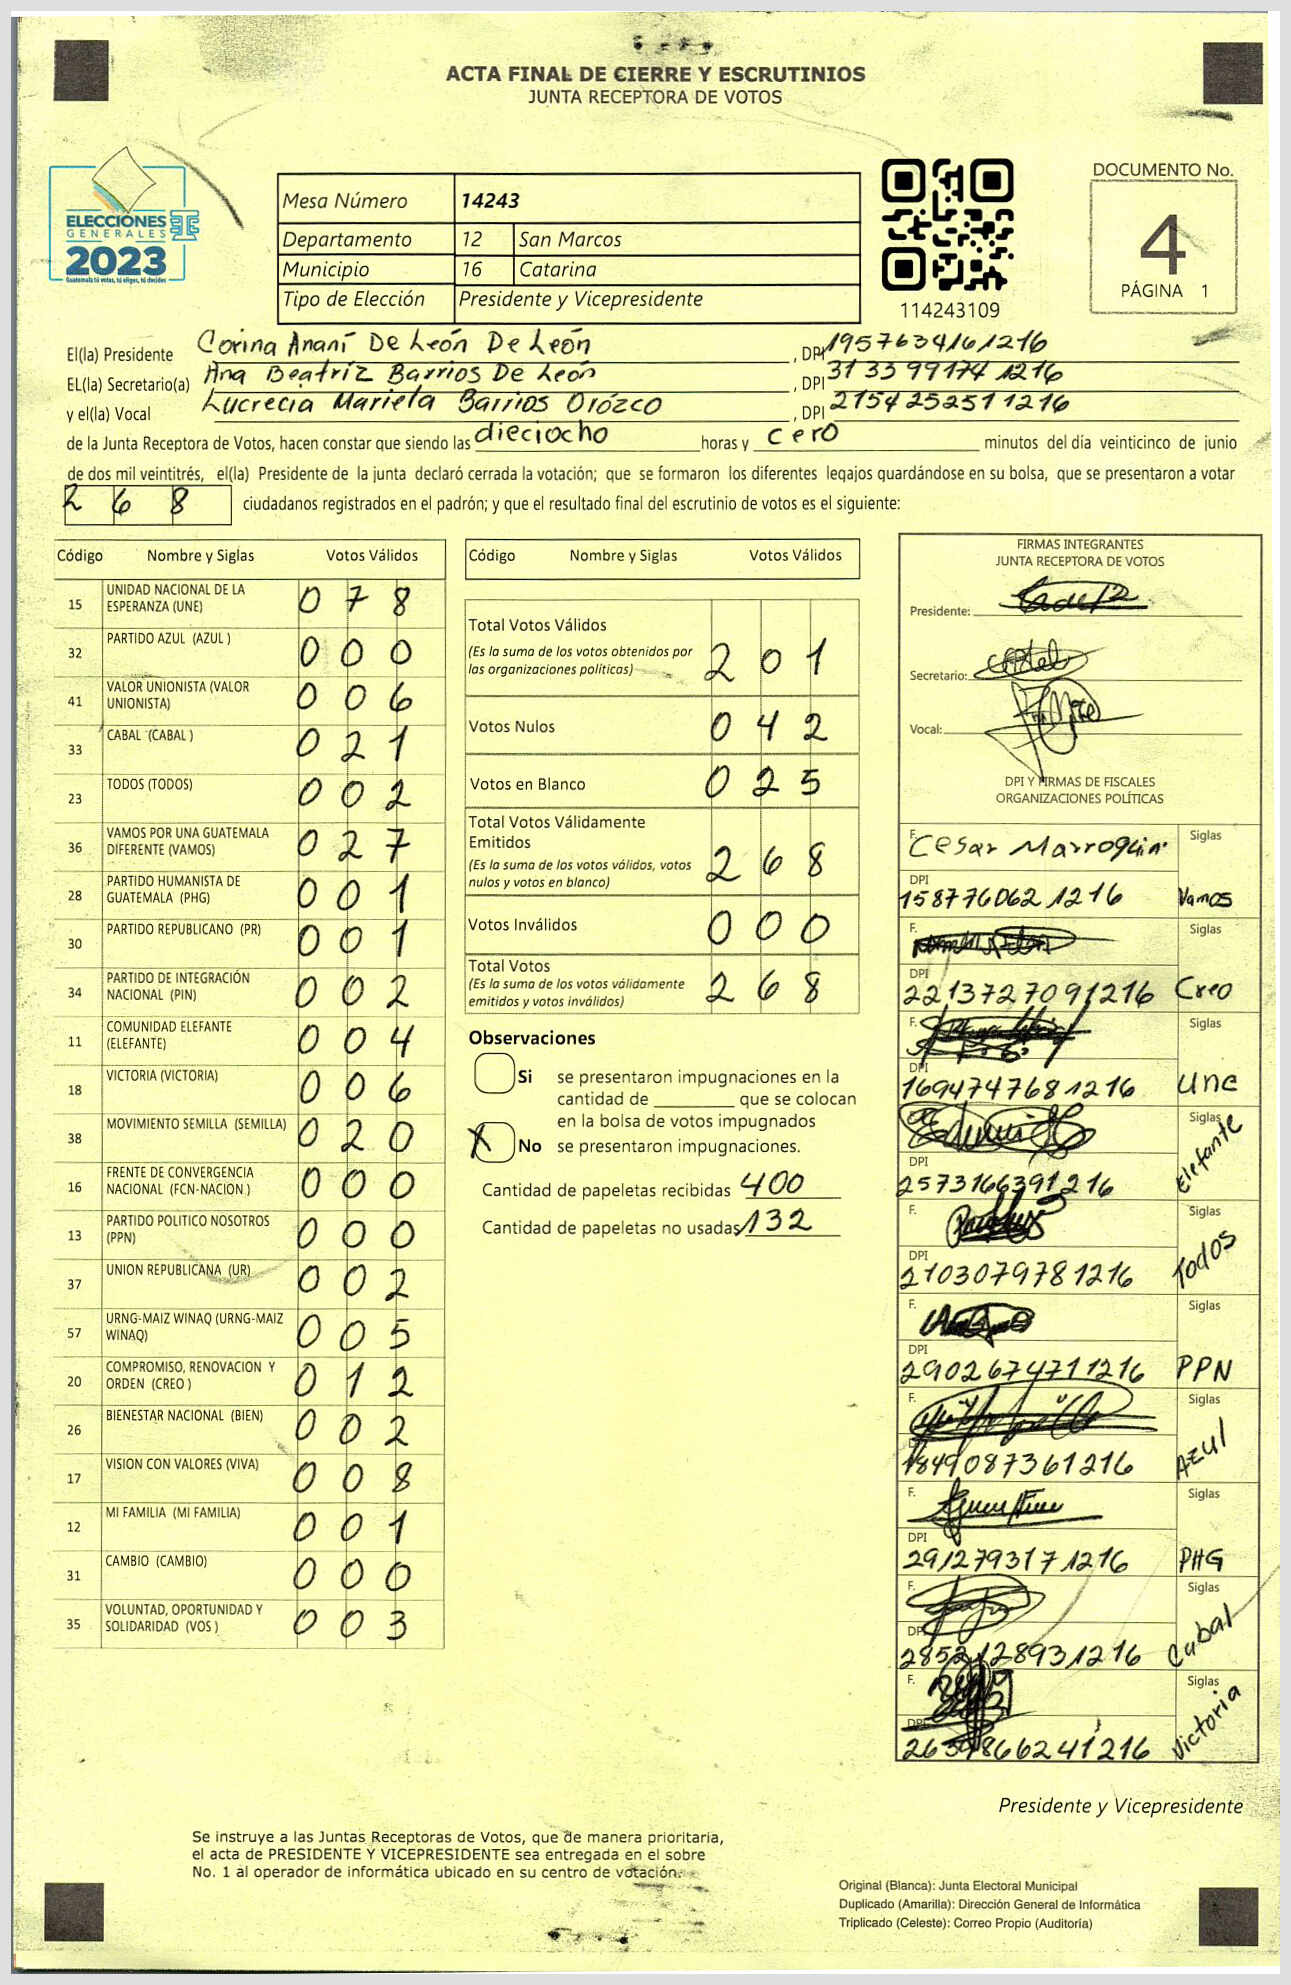 ACTA FINAL DE CIERRE Y ESCRUTINIOS
JUNTA RECEPTORA DE VOTOS
ELECCIONES
GENERALES
2023
Guatemala tú votas, tú eliges, tú decides
Mesa Número 14243
Departamento 12 San Marcos
Municipio 16 Catarina
Tipo de Elección Presidente y Vicepresidente
114243109
DOCUMENTO No.
4
PÁGINA 1
El(la) Presidente Corina Ananí De León De León , DPI 1957634161216
EL(la) Secretario(a) Ana Beatríz Barrios De León , DPI 3133991741216
y el(la) Vocal Lucrecia Marieta Barrios Orózco , DPI 2154252511216
de la Junta Receptora de Votos, hacen constar que siendo las dieciocho horas y cero minutos del día veinticinco de junio
de dos mil veintitrés, el(la) Presidente de la junta declaró cerrada la votación; que se formaron los diferentes legajos guardándose en su bolsa, que se presentaron a votar
268 ciudadanos registrados en el padrón; y que el resultado final del escrutinio de votos es el siguiente:
Código Nombre y Siglas Votos Válidos
15 UNIDAD NACIONAL DE LA ESPERANZA (UNE) 078
32 PARTIDO AZUL (AZUL ) 000
41 VALOR UNIONISTA (VALOR UNIONISTA) 006
33 CABAL (CABAL ) 021
23 TODOS (TODOS) 002
36 VAMOS POR UNA GUATEMALA DIFERENTE (VAMOS) 027
28 PARTIDO HUMANISTA DE GUATEMALA (PHG) 001
30 PARTIDO REPUBLICANO (PR) 001
34 PARTIDO DE INTEGRACIÓN NACIONAL (PIN) 002
11 COMUNIDAD ELEFANTE (ELEFANTE) 004
18 VICTORIA (VICTORIA) 006
38 MOVIMIENTO SEMILLA (SEMILLA) 020
16 FRENTE DE CONVERGENCIA NACIONAL (FCN-NACION ) 000
13 PARTIDO POLITICO NOSOTROS (PPN) 000
37 UNION REPUBLICANA (UR) 002
57 URNG-MAIZ WINAQ (URNG-MAIZ WINAQ) 005
20 COMPROMISO, RENOVACION Y ORDEN (CREO ) 012
26 BIENESTAR NACIONAL (BIEN) 002
17 VISION CON VALORES (VIVA) 008
12 MI FAMILIA (MI FAMILIA) 001
31 CAMBIO (CAMBIO) 000
35 VOLUNTAD, OPORTUNIDAD Y SOLIDARIDAD (VOS ) 003
Código Nombre y Siglas Votos Válidos
Total Votos Válidos 201
(Es la suma de los votos obtenidos por
las organizaciones políticas)
Votos Nulos 042
Votos en Blanco 025
Total Votos Válidamente
Emitidos 268
(Es la suma de los votos válidos, votos
nulos y votos en blanco)
Votos Inválidos 000
Total Votos 268
(Es la suma de los votos válidamente
emitidos y votos inválidos)
Observaciones
Si se presentaron impugnaciones en la
cantidad de ________ que se colocan
en la bolsa de votos impugnados
X No se presentaron impugnaciones.
Cantidad de papeletas recibidas 400
Cantidad de papeletas no usadas 132
FIRMAS INTEGRANTES
JUNTA RECEPTORA DE VOTOS
Presidente:
Secretario:
Vocal:
DPI Y FIRMAS DE FISCALES
ORGANIZACIONES POLÍTICAS
F. Cesar Marroquin Siglas
DPI 1587760621216 Vamos
F. Siglas
DPI 2213727091216 Creo
F. Siglas
DPI 1694747681216 Une
F. Siglas
DPI 2573166391216 Elefante
F. Siglas
DPI 2103079781216 Todos
F. Siglas
DPI 2902674711216 PPN
F. Siglas
1849087361216 Azul
F. Siglas
DPI 2912793171216 PHG
F. Siglas
DPI 2852128931216 Cabal
F. Siglas
DPI Victoria
Presidente y Vicepresidente
Se instruye a las Juntas Receptoras de Votos, que de manera prioritaria,
el acta de PRESIDENTE Y VICEPRESIDENTE sea entregada en el sobre
No. 1 al operador de informática ubicado en su centro de votación.
Original (Blanca): Junta Electoral Municipal
Duplicado (Amarilla): Dirección General de Informática
Triplicado (Celeste): Correo Propio (Auditoría)